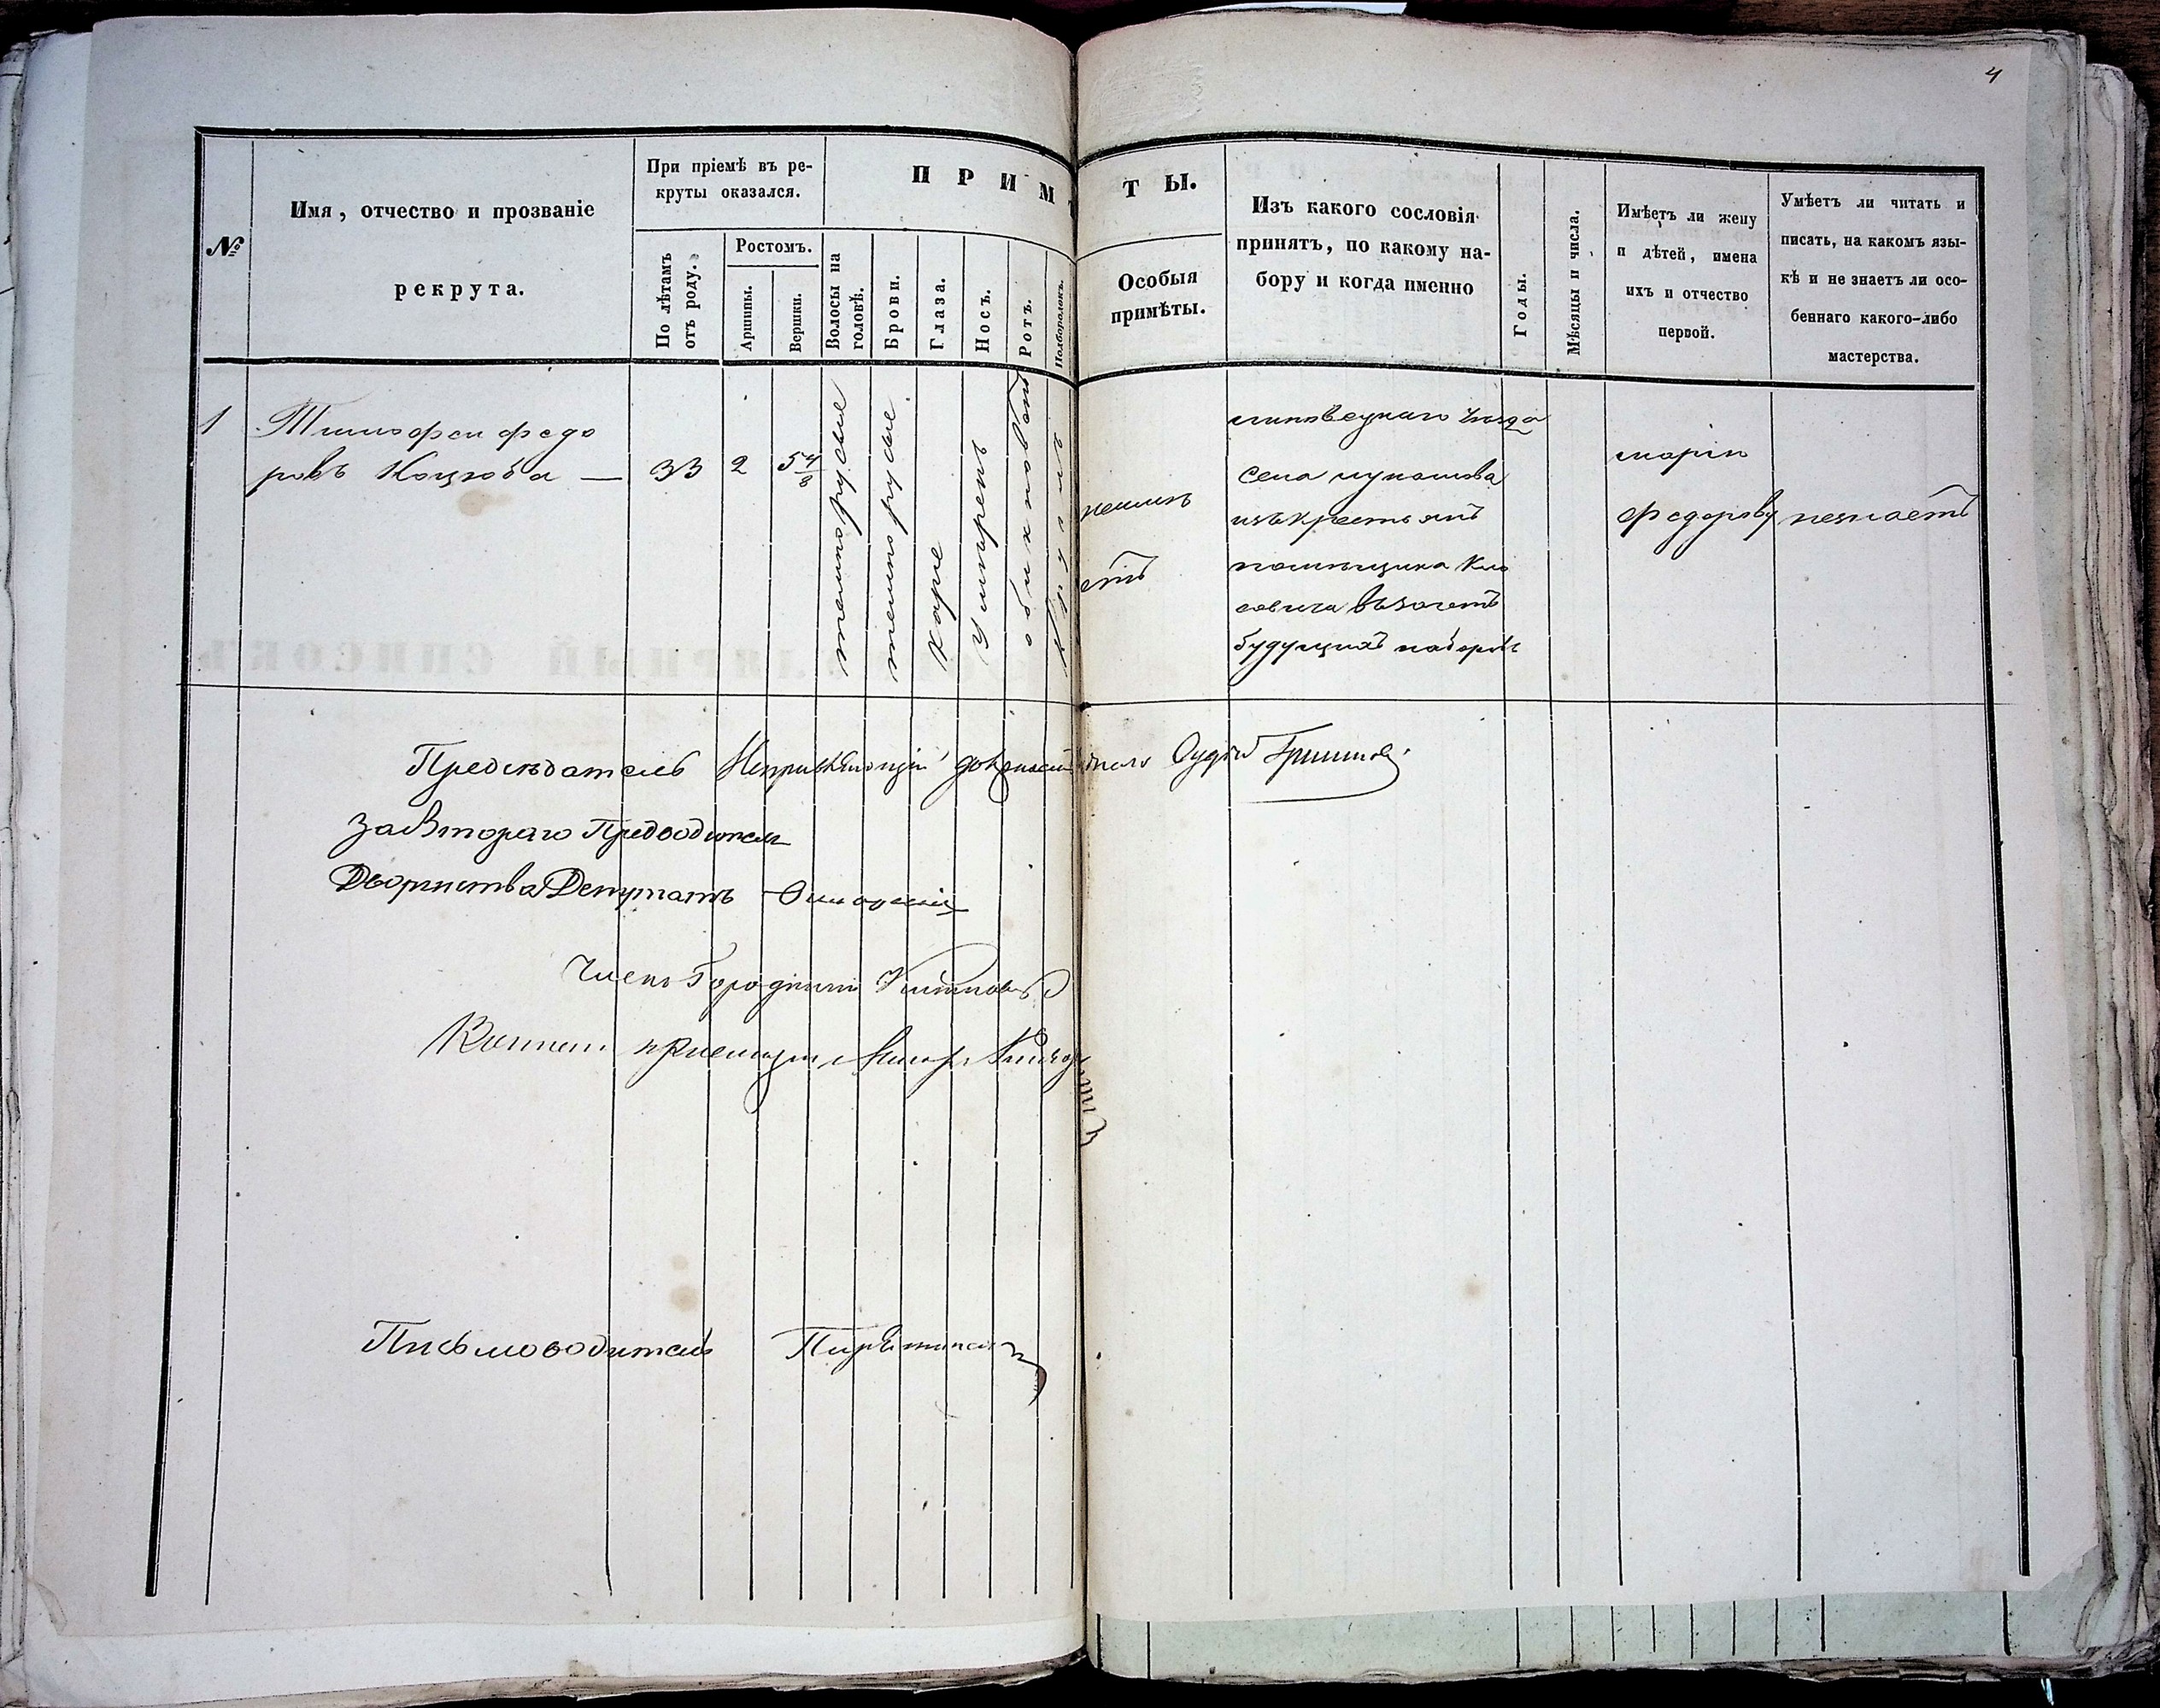 4
№
Имя, отчество и прозваніе
рекрута.
При пріемѣ въ ре-
круты оказался.
По лѣтамъ
отъ роду.
Ростомъ.
Аршины.
Вершки.
ПРИМѢТЫ.
Волосы на
головѣ.
Брови.
Глаза.
Носъ.
Ротъ.
Подбородокъ.
Особыя
примѣты.
Изъ какого сословія
принятъ, по какому на-
бору и когда именно
Годы.
Мѣсяцы и числа.
Имѣетъ ли жену
и дѣтей, имена
ихъ и отчество
первой.
Умѣетъ ли читать и
писать, на какомъ язы-
кѣ и не знаетъ ли осо-
беннаго какого-либо
мастерства.
1
Тимофеи федо
ровъ Коцюба —
33
2
5 4/8
темнорусые
темнорусые
Карие
Умѣренъ
обикновенъ
Круглъ
неимѣ
етъ
липовецкаго уезда
села лукашова
изъ крестьянъ
помѣщика
въ зачетъ
будущихъ наборовъ
марію
федорову
незнаетъ
Предсѣдатель Исправляющій должность Судьи
За Втораго Предводителя
Дворянства Депутатъ
Членъ Городничій
Военный приемщикъ Маіоръ
Письмоводитель